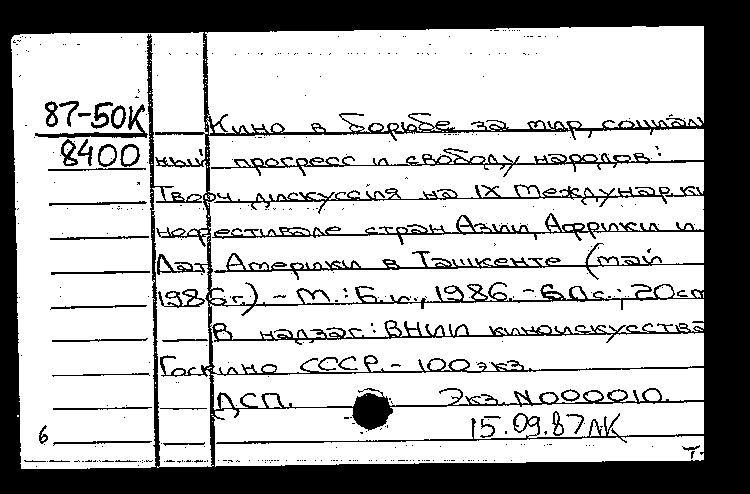 87-50К Кино в борьбе за мир, социаль
8400 ный прогресс и свободу народов:
Творч. дискуссия на IX Междунар. ки
нофестивале стран Азии, Африки и
Лат. Америки в Ташкенте (май
1986 г.). - М.: Б.и., 1986. - 60 с.; 20 см
В надзаг.: ВНИИ киноискусства
Госкино СССР. - 100 экз.
ДСП. Экз. N000010.
6 15.09.87 ЛК
Т-